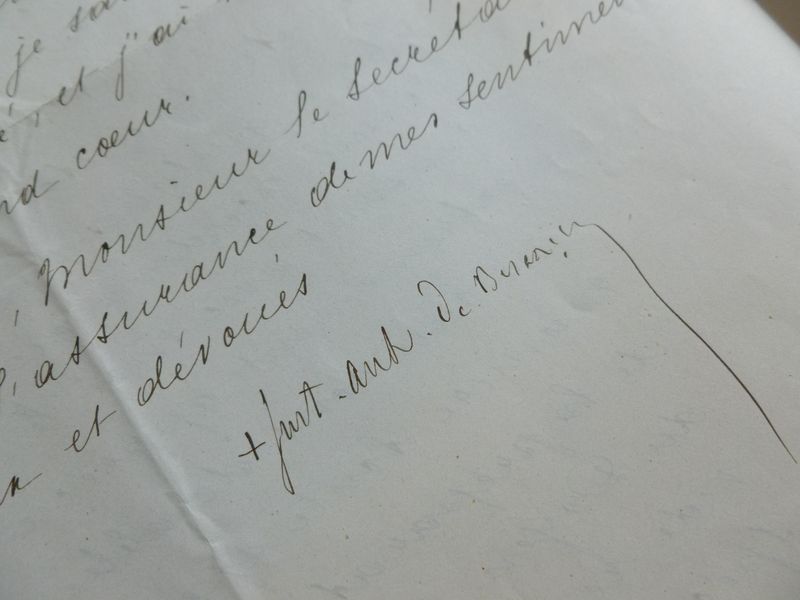 je
, et j'ai
coeur.
, Monsieur le Secréta
l'assurance de mes sentimen
et dévoués
+ Just. arch. de Besançon